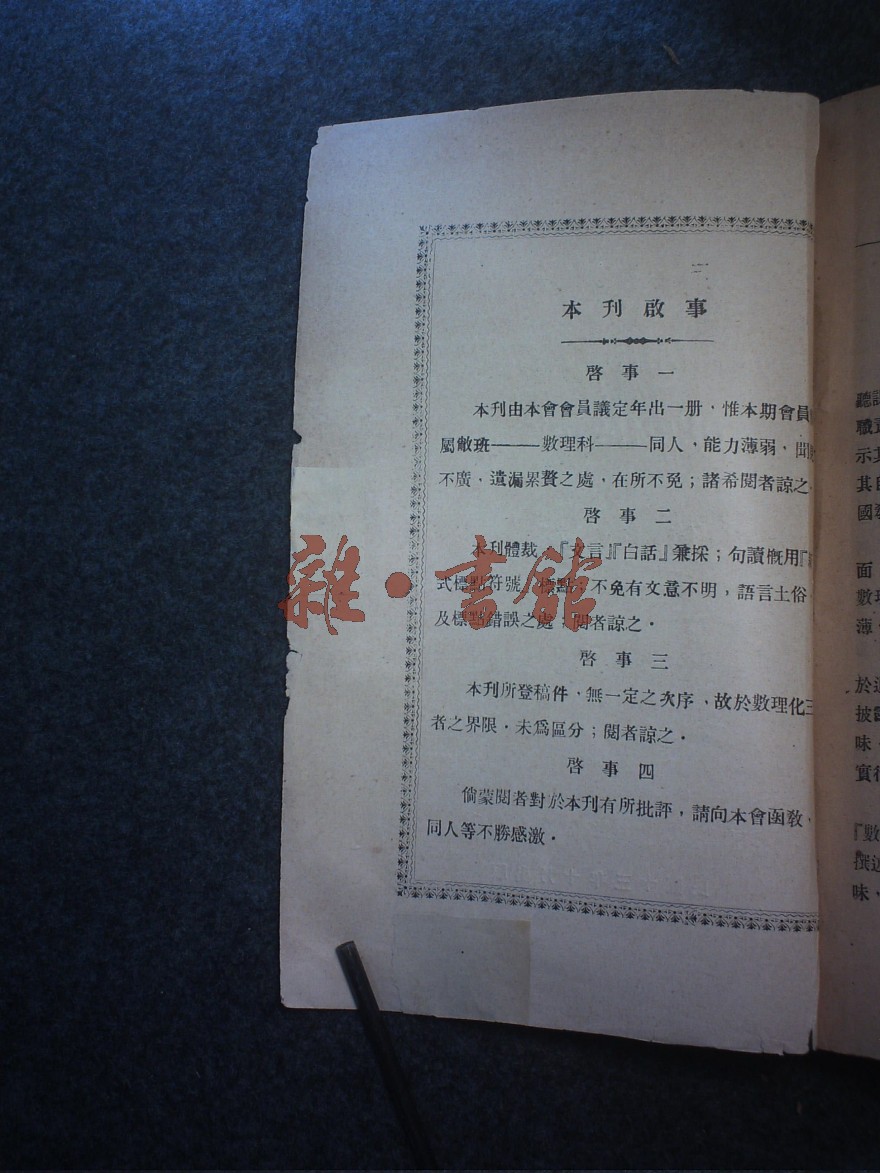 本刊啟事
啓事一
本刊由本會會員議定年出一册，惟本期會員
屬敝班———數理科———同人，能力薄弱，聞
不廣，遺漏累贅之處，在所不免；諸希閱者諒之．
啓事二
本刊體裁，『文言』『白話』兼採；句讀慨用『
式標點符號』標點；不免有文意不明，語言土俗，
及標點錯誤之處；閱者諒之．
啓事三
本刊所登稿件，無一定之次序，故於數理化三
者之界限．未爲區分；閱者諒之．
啓事四
倘蒙閱者對於本刊有所批評，請向本會函敎，
同人等不勝感激．
雜·書館
職責
示其
面
數理
薄，
於
味．
實
『數
撰述
味、